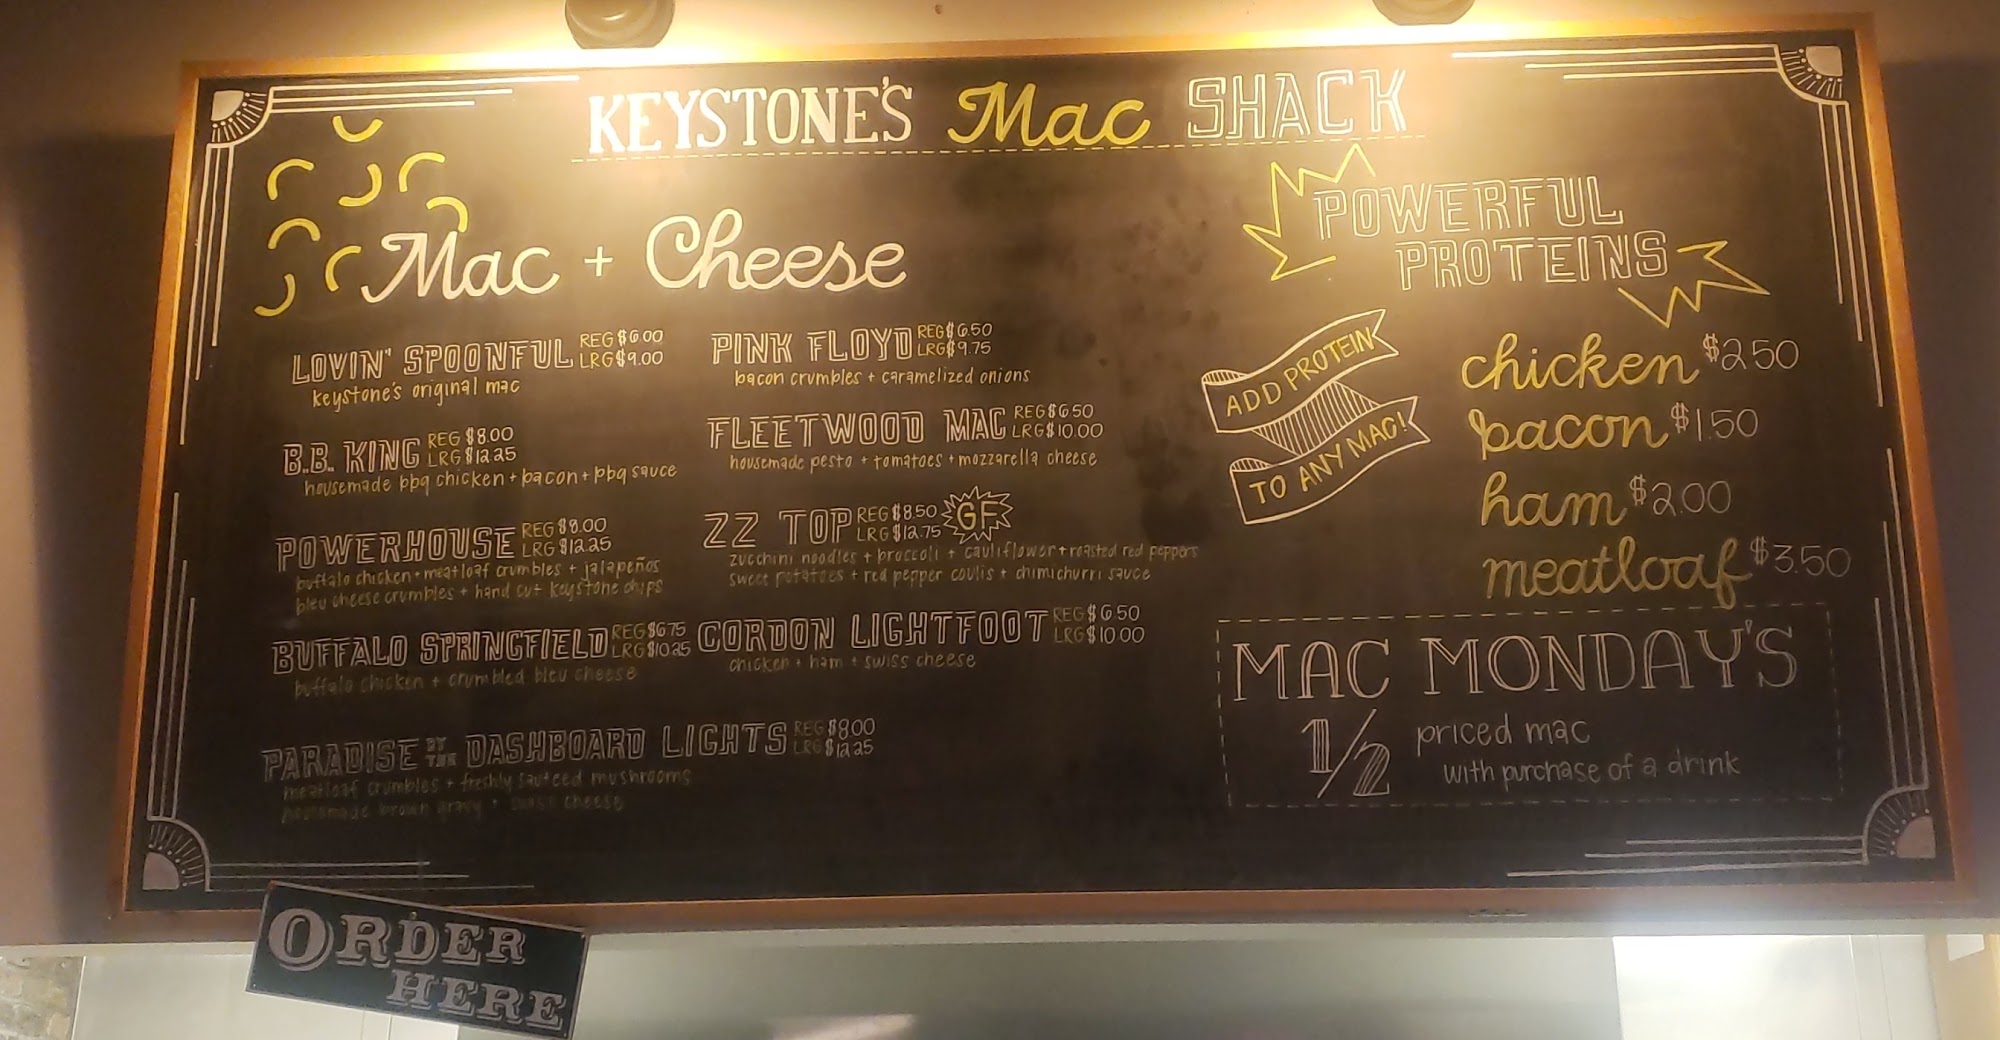 KEYSTONE'S Mac SHACK
Mac + Cheese
LOVIN' SPOONFUL REG $6.00
LRG $9.00
keystone's original mac
B.B. KING REG $8.00
LRG $12.25
housemade bbq chicken + bacon + bbq sauce
POWERHOUSE REG $9.00
LRG $12.25
buffalo chicken + meatloaf crumbles + jalapeños
bleu cheese crumbles + hand cut keystone chips
BUFFALO SPRINGFIELD REG $6.75
LRG $10.25
buffalo chicken + crumbled bleu cheese
PARADISE BY THE DASHBOARD LIGHTS REG $8.00
LRG $12.25
meatloaf crumbles + freshly sauteed mushrooms
homemade brown gravy + swiss cheese
PINK FLOYD REG $6.50
LRG $9.75
bacon crumbles + caramelized onions
FLEETWOOD MAC REG $6.50
LRG $10.00
housemade pesto + tomatoes + mozzarella cheese
ZZ TOP REG $8.50 GF
LRG $12.75
zucchini noodles + broccoli + cauliflower + roasted red peppers
sweet potatoes + red pepper coulis + chimichurri sauce
CORDON LIGHTFOOT REG $6.50
LRG $10.00
chicken + ham + swiss cheese
POWERFUL
PROTEINS
ADD PROTEIN
TO ANY MAC!
chicken $2.50
bacon $1.50
ham $2.00
meatloaf $3.50
MAC MONDAY'S
1/2 priced mac
with purchase of a drink
ORDER
HERE